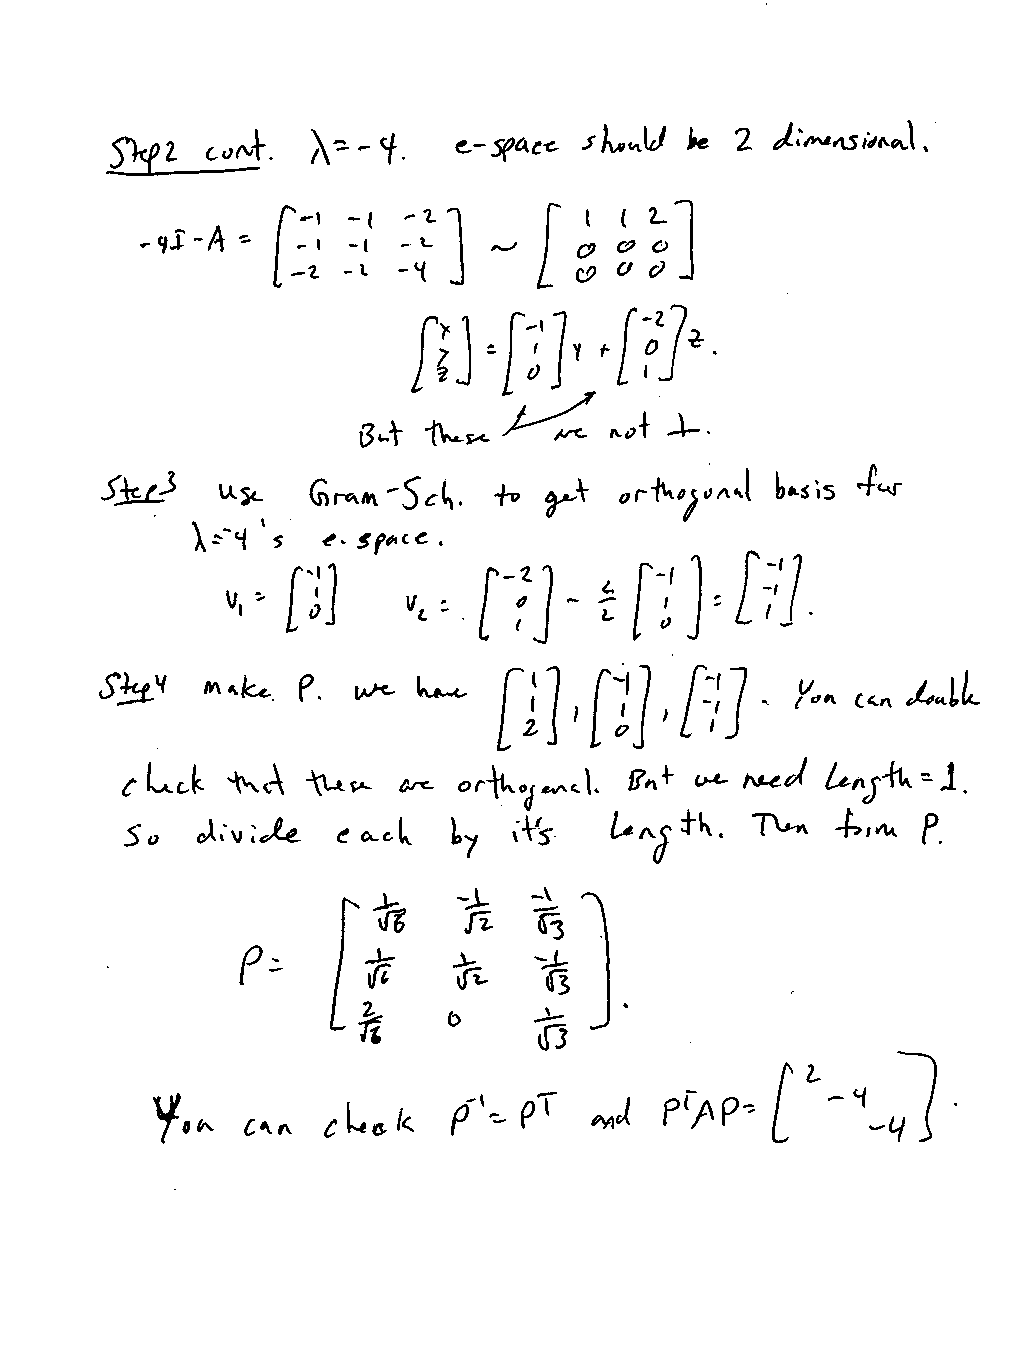 Step2 cont. λ=-4. e-space should be 2 dimensional.
-4I-A = [-1 -1 -2; -1 -1 -2; -2 -2 -4] ~ [1 1 2; 0 0 0; 0 0 0]
[x; y; z] = [-1; 1; 0] y + [-2; 0; 1] z.
But these are not ⊥.
Step3 use Gram-Sch. to get orthogonal basis for
λ=-4's e.space.
v₁ = [-1; 1; 0] v₂ = [-2; 0; 1] - 2/2 [-1; 1; 0] = [-1; -1; 1].
Step4 make P. we have [1; 1; 2], [-1; 1; 0], [-1; -1; 1]. You can double
check that these are orthogonal. But we need Length=1.
So divide each by it's Length. Then form P.
P = [1/√6 -1/√2 -1/√3; 1/√6 1/√2 -1/√3; 2/√6 0 1/√3].
You can check P⁻¹=Pᵀ and PᵀAP= [2 -4 -4].